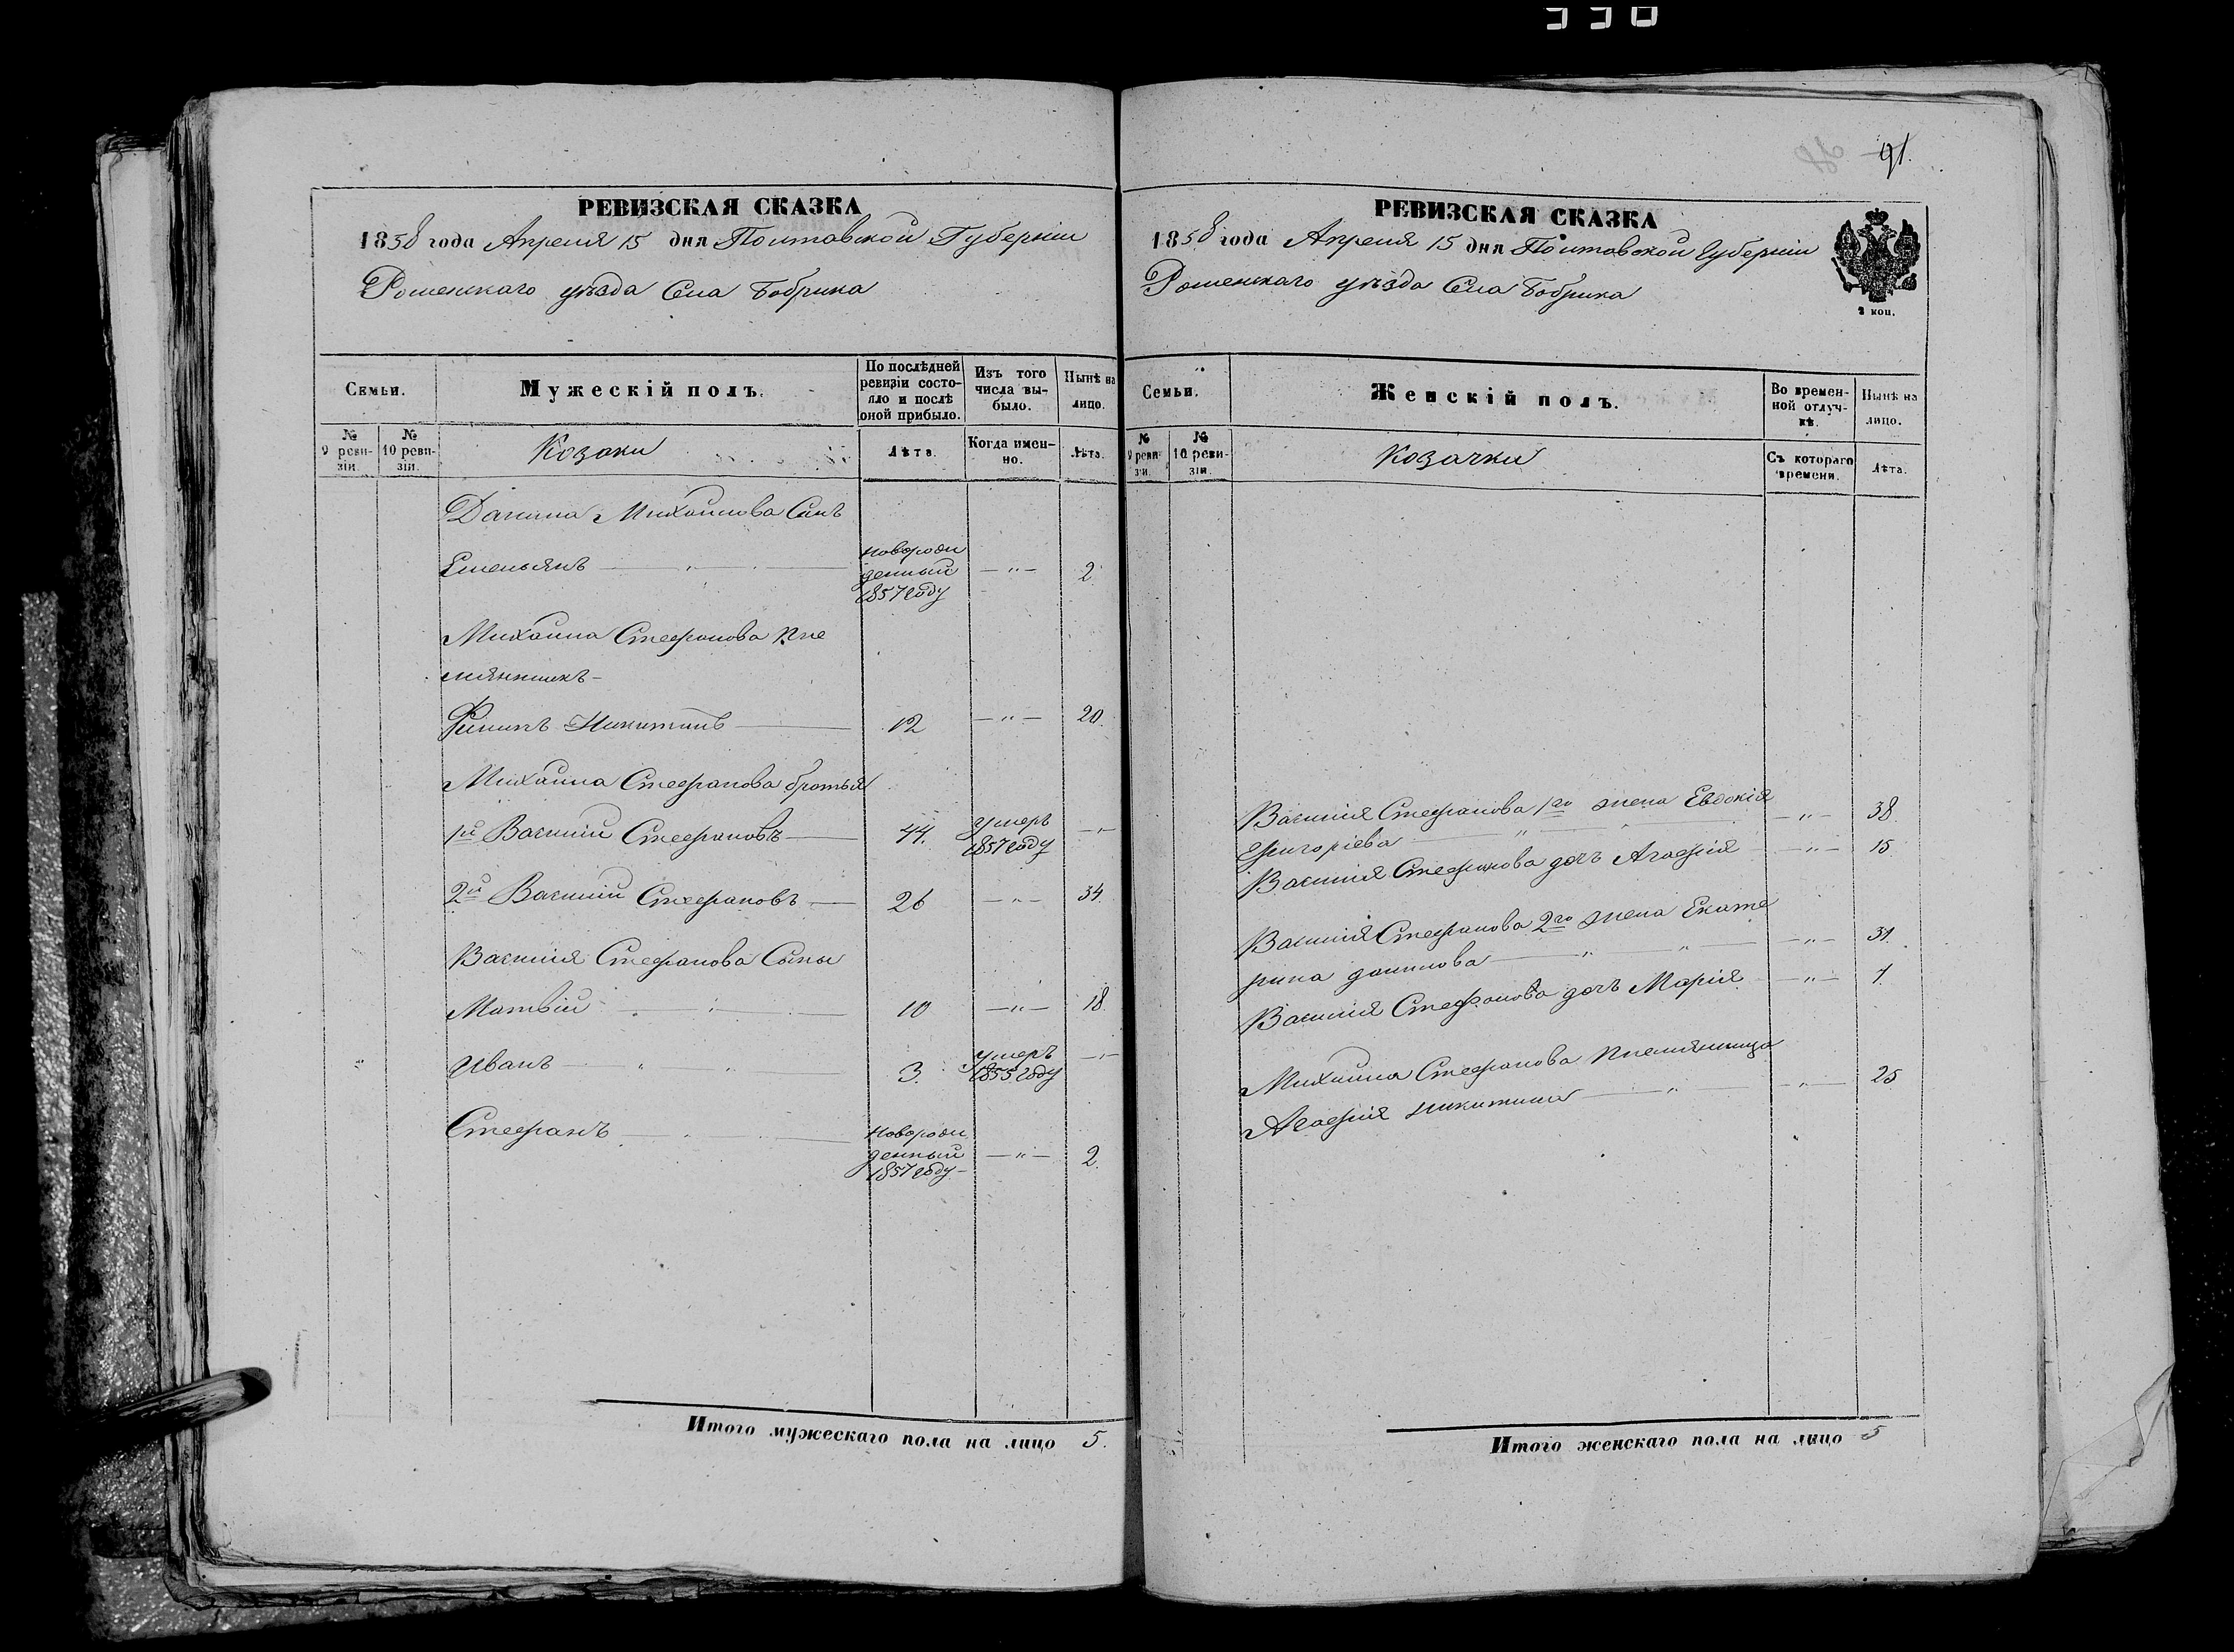 91.
РЕВИЗСКАЯ СКАЗКА
1858 года Апреля 15 дня Полтавской Губерніи
Роменскаго уѣзда Села Бобрика
Семьи.
Мужескій полъ.
По послѣдней ревизіи состояло и послѣ оной прибыло.
Изъ того числа выбыло.
Нынѣ на лицо.
№ 9 ревизіи.
№ 10 ревизіи.
Козаки
Лѣта.
Когда именно.
Лѣта.
Данила Михайлова Сынъ
Емельянъ — новорожденный 1857 году — „ — 2.
Михайла Стефанова пле
мянникъ —
Филипъ Никитинъ — 12 — „ — 20.
Михайла Стефанова братья
1й Василій Стефановъ — 44. умеръ 1857 году — „ —
2й Василій Стефановъ — 26 — „ — 34.
Василія Стефанова Сыны
Матвій — „ — 10 — „ — 18.
Иванъ — „ — „ — 3. умеръ 1855 году — „ —
Стефанъ — „ — новорожденный 1857 году — „ — 2.
Итого мужескаго пола на лицо 5.
РЕВИЗСКАЯ СКАЗКА
1858 года Апреля 15 дня Полтавской Губерніи
Роменскаго уѣзда Села Бобрика
2 коп.
Семьи.
Женскій полъ.
Во временной отлучкѣ.
Нынѣ на лицо.
№ 9 ревизіи.
№ 10 ревизіи.
Козачки
Съ котораго времени.
Лѣта.
Василія Стефанова 1го жена Евдокія
Григоріева — „ — „ — 38.
Василія Стефанова дочь Агафія — „ — 15
Василія Стефанова 2го жена Екате
рина данилова — „ — „ — 31.
Василія Стефанова дочь Марія — „ —
Михайла Стефанова племянница
Агафія Никитина — „ — „ — 25
Итого женскаго пола на лицо 5